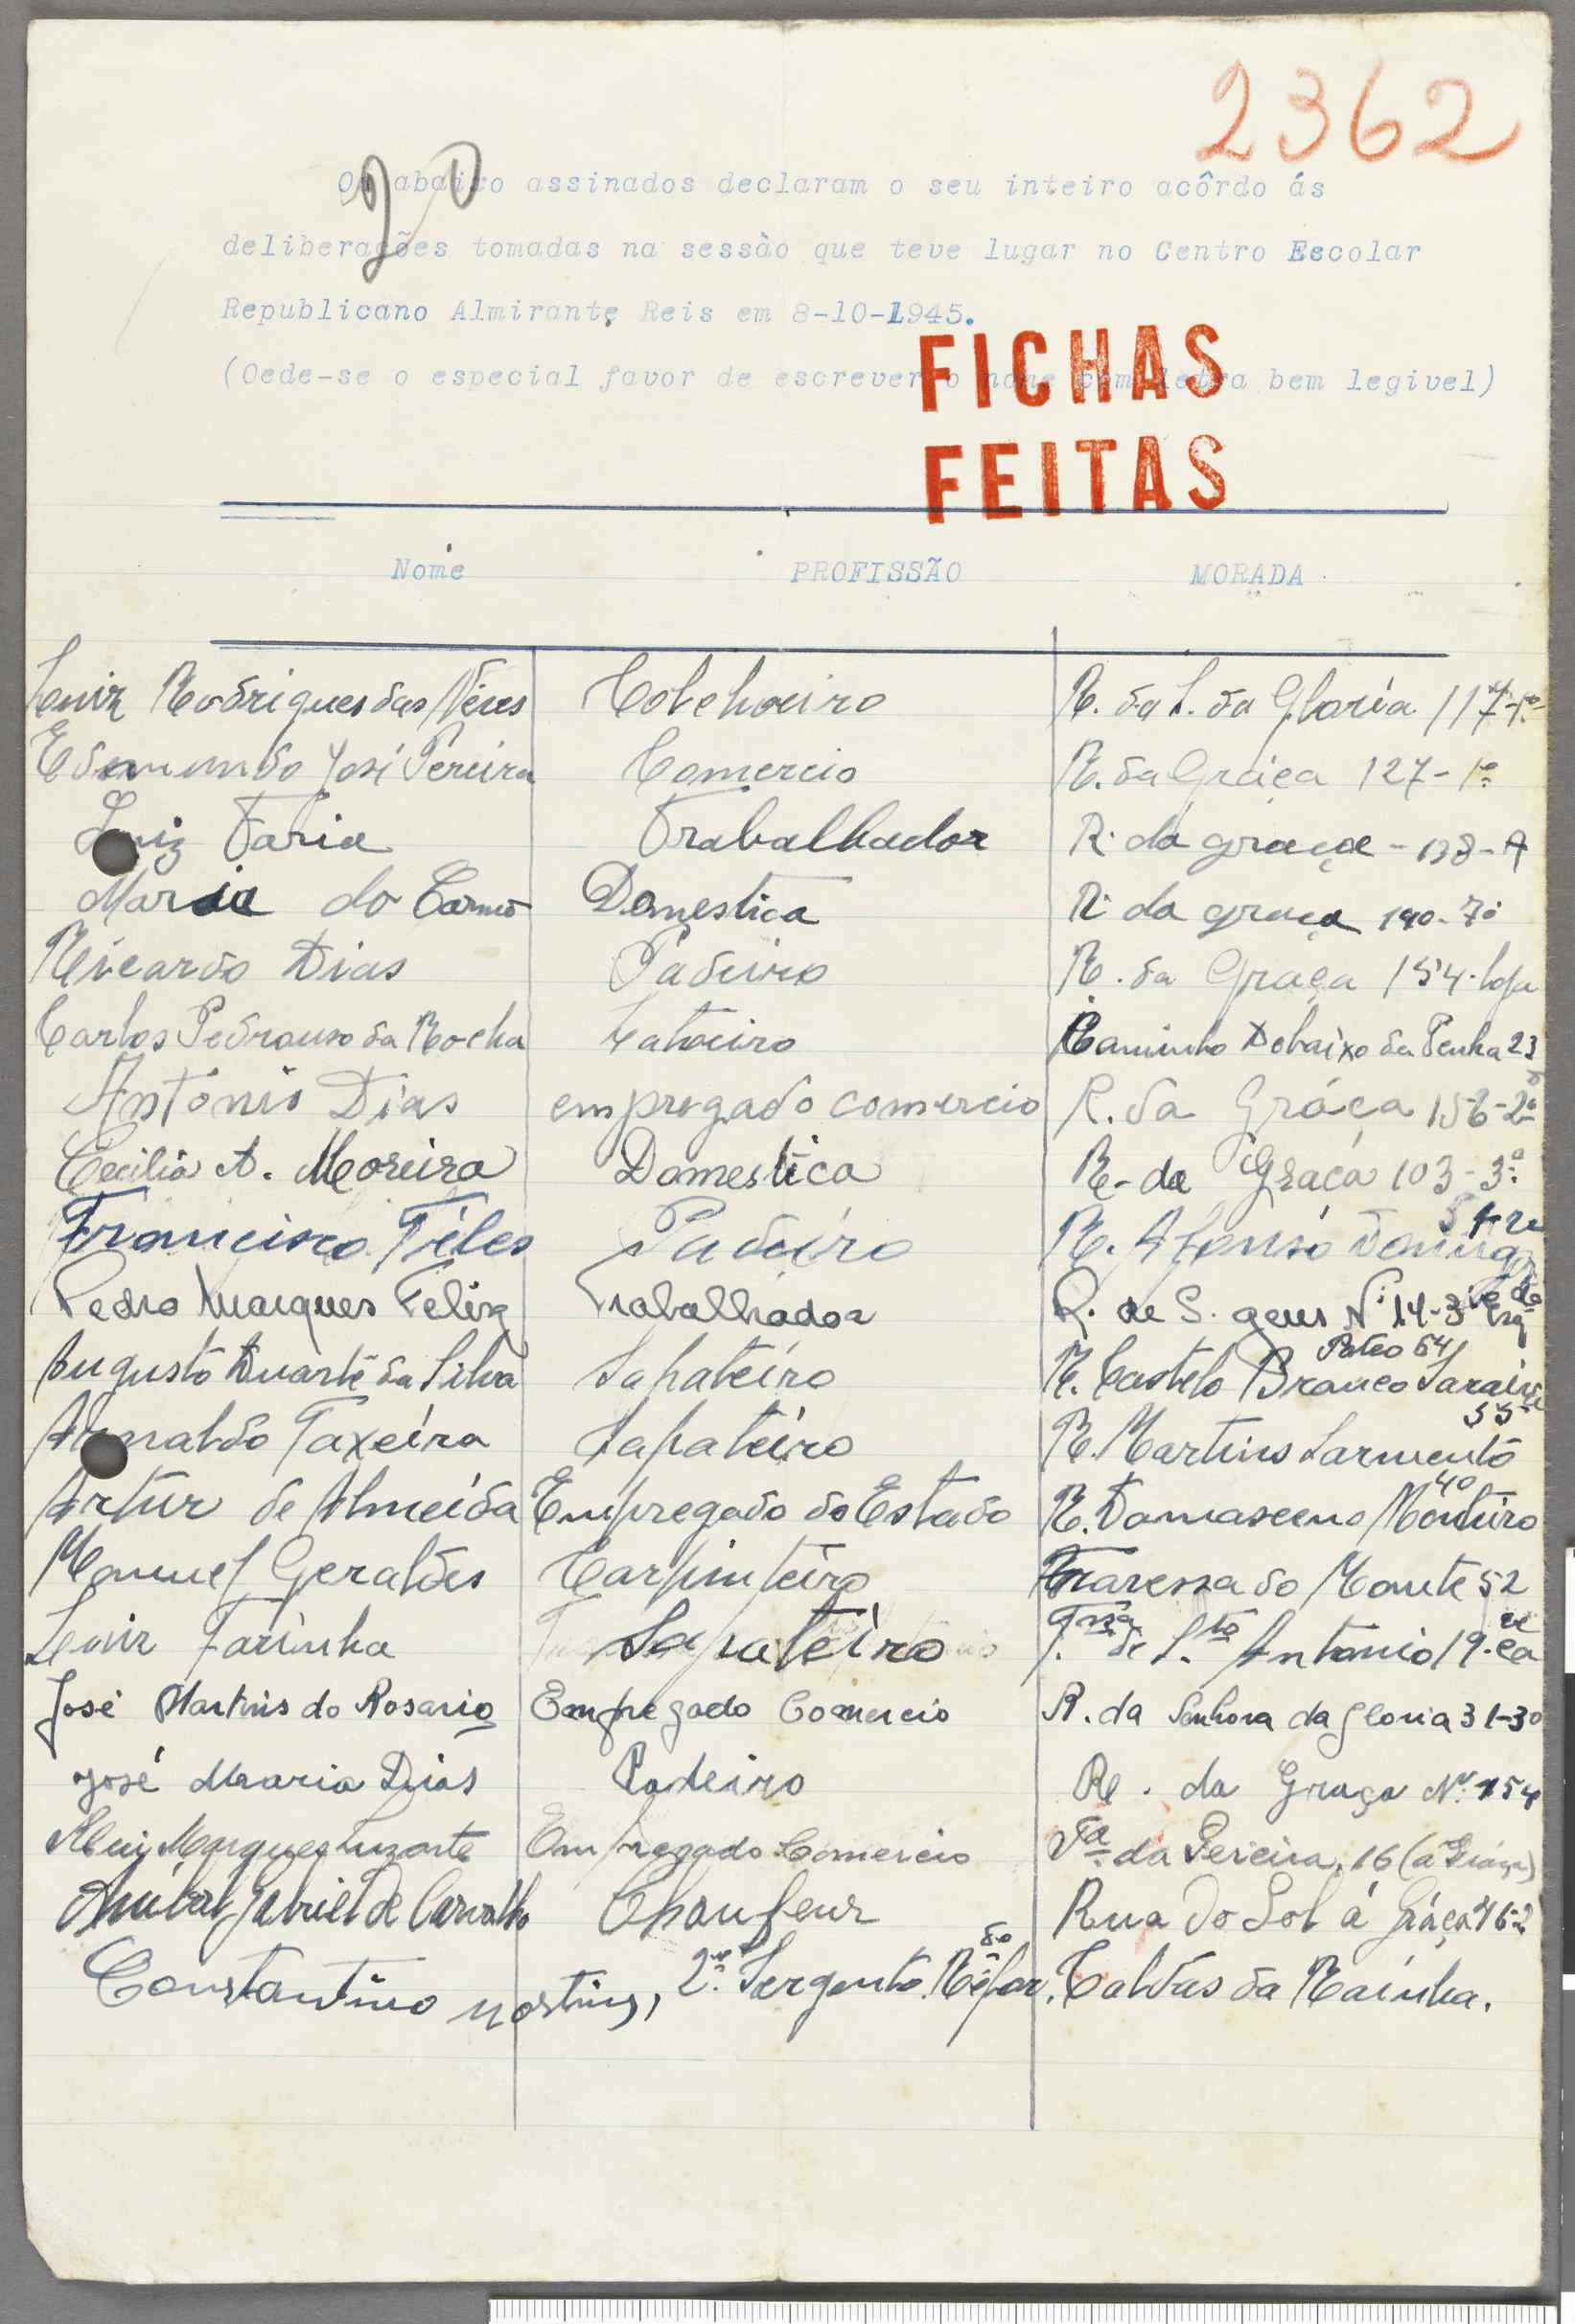 2362
Os abaixo assinados declaram o seu inteiro acôrdo ás
deliberações tomadas na sessào que teve lugar no Centro Escolar
Republicano Almirante Reis em 8-10-1945.
(Oede-se o especial favor de escrever o nome com letra bem legivel)
FICHAS
FEITAS
Nome PROFISSÃO MORADA
Luiz Rodrigues das Neves Colchoeiro R. da S. da Gloria 117-1º
Edemundo José Pereira Comercio R. da Graça 127-1º
Luiz Faria Trabalhador R. da graça - 138-A
Maria do Carmo Domestica R. da graça 140-7º
Ricardo Dias Padeiro R. da Graça 154-loja
Carlos Pedrouso da Rocha Latoeiro Caminho Debaixo da Penha 23
António Dias empregado comercio R. da Graça 156-2º
Cecilia A. Moreira Domestica R. da Graça 103-3º
Francisco Téles Padeiro R. Afonso Doming
Pedro Marques Felix Trabalhador R. de S. gens Nº 14-3º Esq
Augusto Duarte da Silva Sapateiro R. Castelo Branco Saraiva Pateo 64
Arnaldo Taxeira Sapateiro R. Martins Sarmento 55
Artur de Almeida Empregado do Estado R. Damasceno Monteiro 40
Manuel Geraldes Carpinteiro Travessa do Monte 52
Luiz Farinha Sapateiro T. de S.to Antonio 19-
José Martins do Rosario Empregado Comercio R. da Senhora da gloria 31-3º
José Maria Dias Padeiro R. da Graça Nº 154
Marques Empregado Comercio Tª da Pereira, 16 (á Graça)
Anibal Gabriel de Carvalho Choufeur Rua do Sol á Graça 16-2
Constantino Martins, 2º Sargento Refor.do Caldas da Rainha.